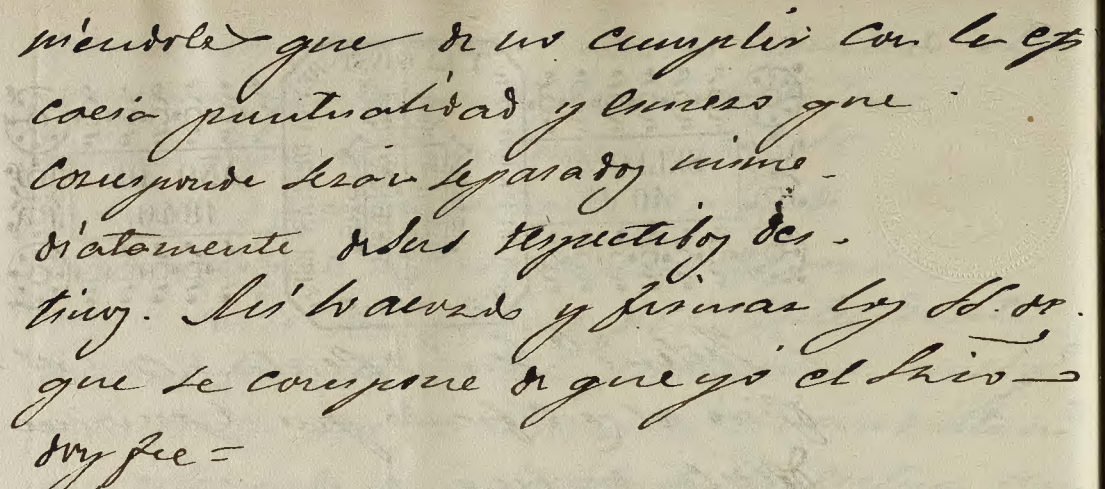 niendoles que de no cumplir con la efi
cacia puntualidad y esmero que
corresponde serán separados inme-
diatamente de sus respectibos des-
tinos. Así lo acordó y firman los SS. de
que se compone de que yó el Srio
doy fee =